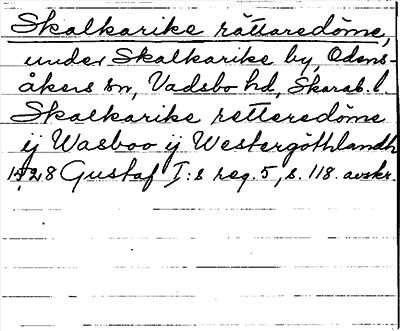 Skalkarike rättaredöme,
under Skalkarike by, Odens-
åkers sn, Vadsbo hd, Skarab. l.
Skalkarike retteredöme
ij Wasboo ij Westergöthlandh
1528 Gustaf I:s reg. 5, s. 118. avskr.